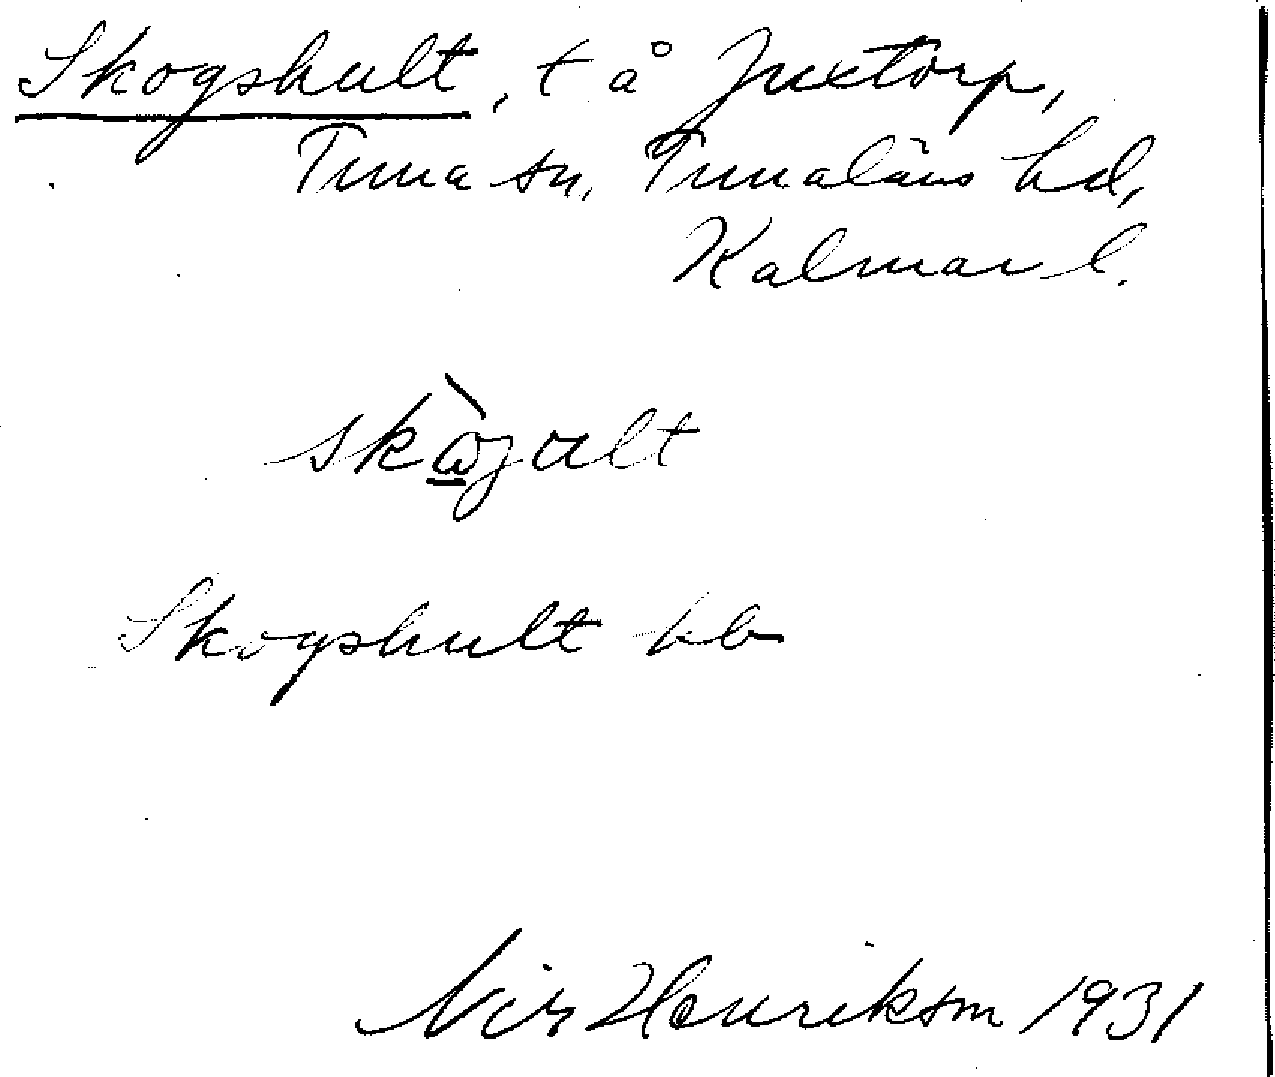 Skogshult, t å Juxtorp,
Tuna sn, Tunaläns hd,
Kalmar l.
skògult
Skogshult kb
Nils Henrikson 1931